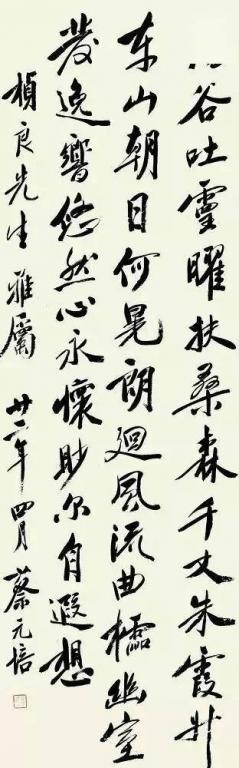 谷吐靈曜扶桑森千丈朱霞升
东山朝日何晃朗迴風流曲櫺幽室
發逸響悠然心永懷眇尔自遐想
楨良先生雅屬 廿二年四月 蔡元培